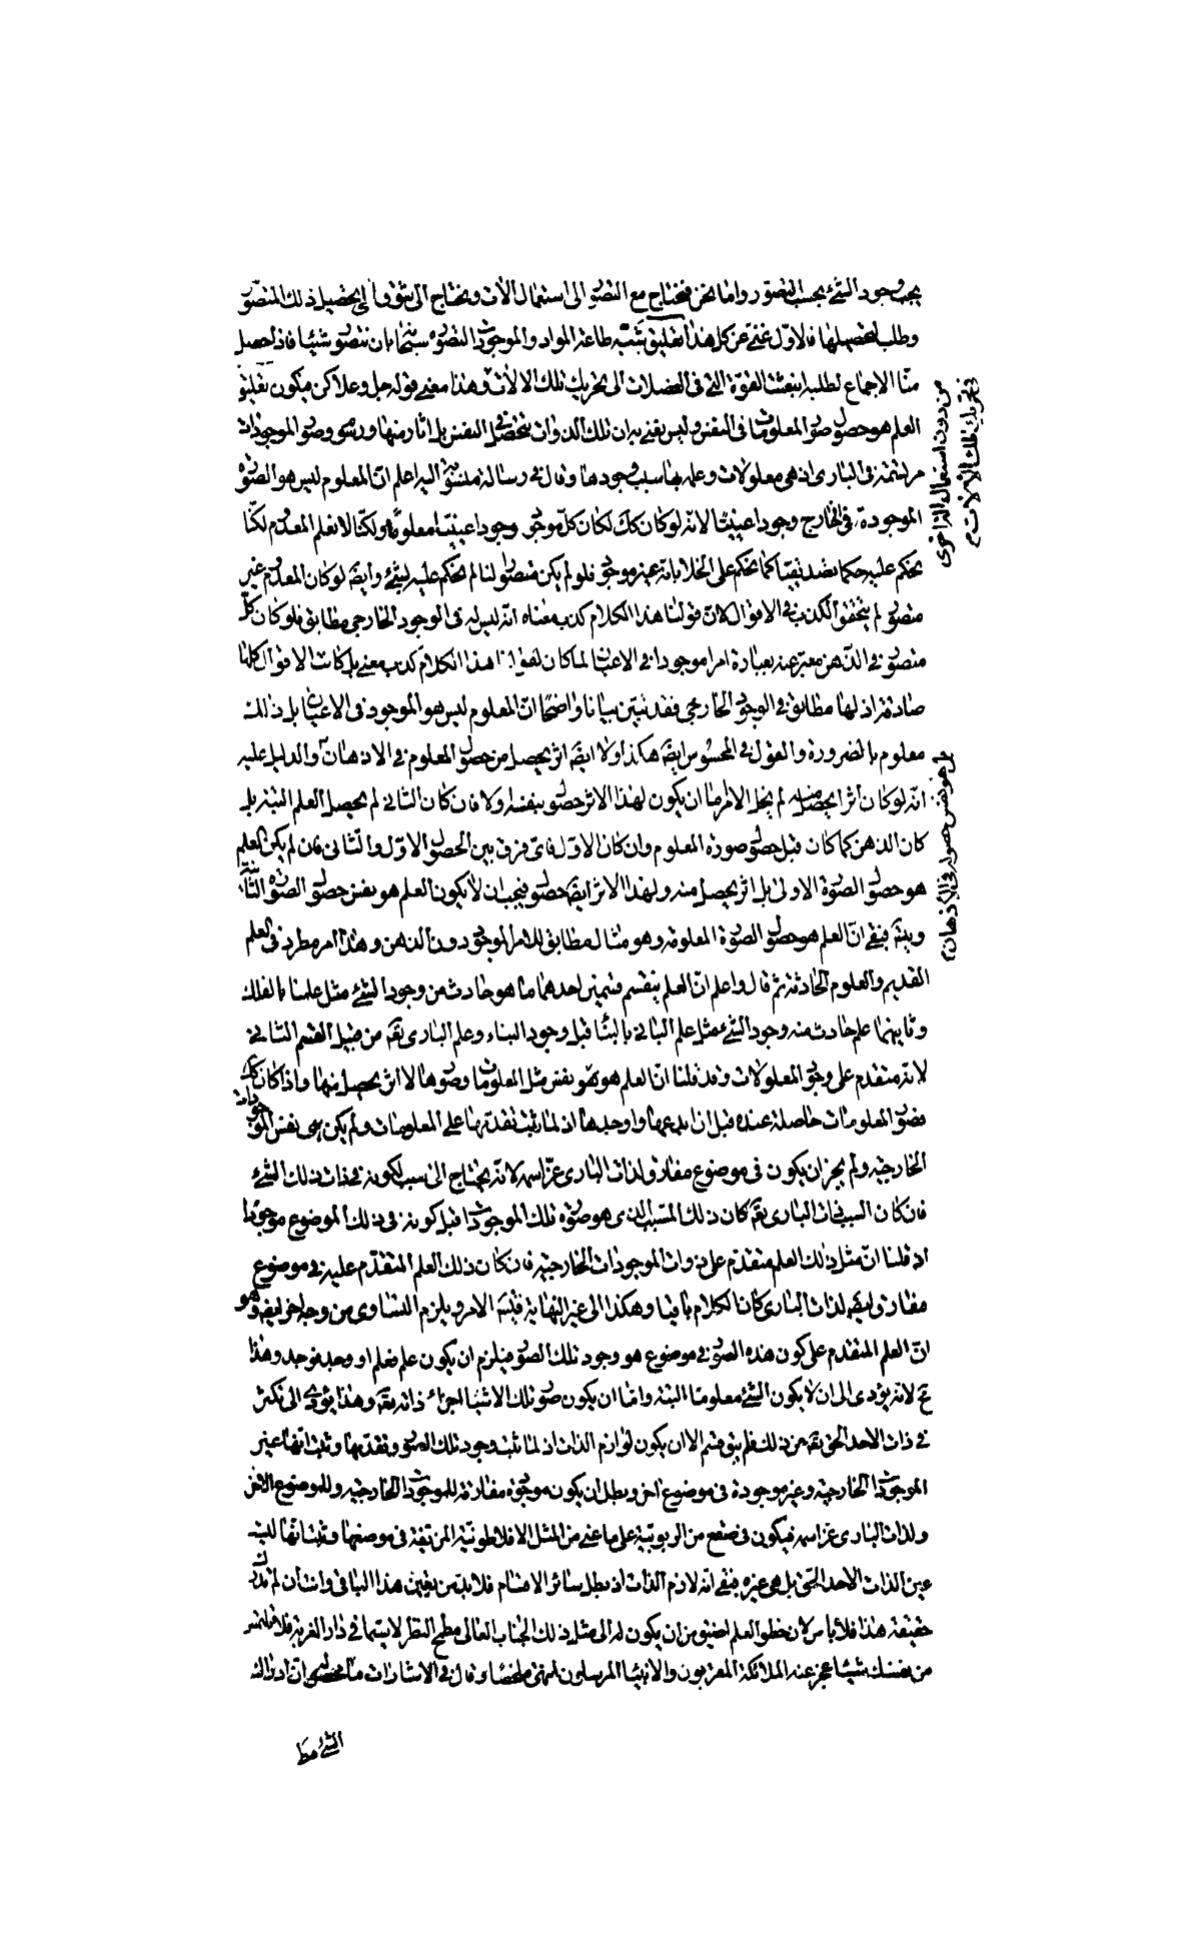 يجب وجود الشئ بحسب التصور واما نحن فنحتاج مع التصور الى استعمال الات ونحتاج الى شوق والى تحصيل ذلك المتصور
وطلب لتحصيلها فالاول غنى عن كل هذا تعليق شبيه طاعة المواد والموجودات لتصوره سبحانه بان نتصور شيئا فاذا حصل
منا الاجماع لطلبه انبعثت القوة التى فى العضلات الى تحريك تلك الالات وهذا معنى قوله جل وعلا كن فيكون تعليق
العلم هو حصول صور المعلومات فى النفس وليس يعنى به ان تلك الذوات تحصل فى النفس بل اثار منها ورسوم وصور الموجودات
مرتسمة فى البارى اذ هى معلولات وعلمه بها سبب وجودها وقال فى رسالة منسوبة اليه اعلم ان المعلوم ليس هو الصورة
الموجودة فى الخارج وجودا عينيا لانه لو كان كك لكان كل موجود وجودا عينيا معلوما لنا ولكنا لا نعلم المعدوم لكنا
نحكم عليه حكما تصديقيا كما نحكم على الخلا بانه غير موجود فلو لم يكن متصورا لنا لم نحكم عليه بشئ وايضا لو كان المعدوم غير
متصور لم يتحقق الكذب فى الاقوال لان قولنا هذا الكلام كذب معناه انه ليس له فى الوجود الخارجى مطابق فلو كان كل
متصور فى الذهن معبر عنه بعبارة امرا موجودا فى الاعيان لما كان لقولنا هذا الكلام كذب معنى بل كانت الاقوال كلها
صادقة اذ لها مطابق فى الوجود الخارجى فقد تبين بيانا واضحا ان المعلوم ليس هو الموجود فى الاعيان بل ذلك
معلوم بالضرورة والقول فى المحسوس ايضا هكذا ولا ايضا اثر يحصل من حصول المعلوم فى الاذهان والدليل عليه
انه لو كان اثرا يحصل منه لم يخل الامر اما ان يكون لهذا الاثر حصول بنفسه او لا فان كان الثانى لم يحصل العلم البتة بل
كان الذهن كما كان قبل حصول صورة المعلوم وان كان الاول فاى فرق بين الحصول الاول والثانى فان لم يكن العلم
هو حصول الصورة الاولى بل اثر يحصل منه ولهذا الاثر ايضا حصول فيجب ان لا يكون العلم هو نفس حصول الصورة الثانية
ويتم فبقى ان العلم هو حصول الصورة المعلومة وهو مثال مطابق للامر الموجود دون الذهن وهذا امر مطرد فى العلم
القديم والعلوم الحادثة ثم قال واعلم ان العلم ينقسم قسمين احدهما ما هو حادث من وجود الشئ مثل علمنا بالفلك
وثانيهما علم حادث منه وجود الشئ مثل علم البانى بالبناء قبل وجود البناء وعلم البارى تعم من قبيل القسم الثانى
لانه متقدم على وجود المعلولات وقد قلنا ان العلم هو نفس مثل المعلومات وصورها لا اثر يحصل منها واذا كان كك
فصور المعلومات حاصلة عنده قبل ان ابدعها واوجدها اذ لما ثبت تقدمها على المعلومات ولم يكن هى نفس الموجودات
الخارجية ولم يجز ان يكون فى موضوع مفارق لذات البارى عز اسمه لانه يحتاج الى سبب لكونه فى ذات ذلك الشئ
فان كان السبب ذات البارى تعم كان ذلك المسبب الذى هو صورة تلك الموجودات قبل كونه فى ذلك الموضوع موجودا
اذ قلنا ان مثل ذلك العلم متقدم على ذوات الموجودات الخارجية فان كان ذلك العلم المتقدم عليه فى موضوع
مفارق ايضا لذات البارى كان الكلام باقيا وهكذا الى غير النهاية فى الامر ويلزم التساوى من وجه اخر ايضا وهو
ان العلم المتقدم على كون هذه الصور فى موضوع هو وجود تلك الصور فيلزم ان يكون علم فعلم او وجد فوجد وهذا
مح لانه يؤدى الى ان لا يكون الشئ معلوما البتة واما ان يكون صور تلك الاشياء اجزاء ذاته تعم وهذا يؤدى الى تكثر
فى ذات الاحد الحق تعم عن ذلك فلم يبق قسم الا ان يكون لوازم الذات اذ لما ثبت وجود تلك الصور وتقدمها وثبت انها غير
الموجودات الخارجية وغير موجودة فى موضوع اخر وبطل ان يكون موجودة مفارقة للموجودات الخارجية وللموضوع الاخر
ولذات البارى عز اسمه فيكون فى صقع من الربوبية على ما عنى من المثل الافلاطونية المزيفة فى موضعها وثبت انها ليست
عين الذات الاحد الحق بل هى غيره فبقى انه لازم الذات اذ بطل سائر الاقسام فلا بد من تعيين هذا الباقى وانت ان لم تدرك
حقيقة هذا فلا باس لان خطو العلم اضيق من ان يكون له الى مثل ذلك الجناب العالى مطمح النظر لا سيما فى دار الغربة فلا تلتمس
من نفسك شيئا عجز عنه الملائكة المقربون والانبياء المرسلون انتهى ملخصا وقال فى الاشارات ما محصله ان ادراك
الشئ هو
من دون استعمال الة اخرى
تحريك تلك الالات م
بل هو نفس حصوله فى الاذهان